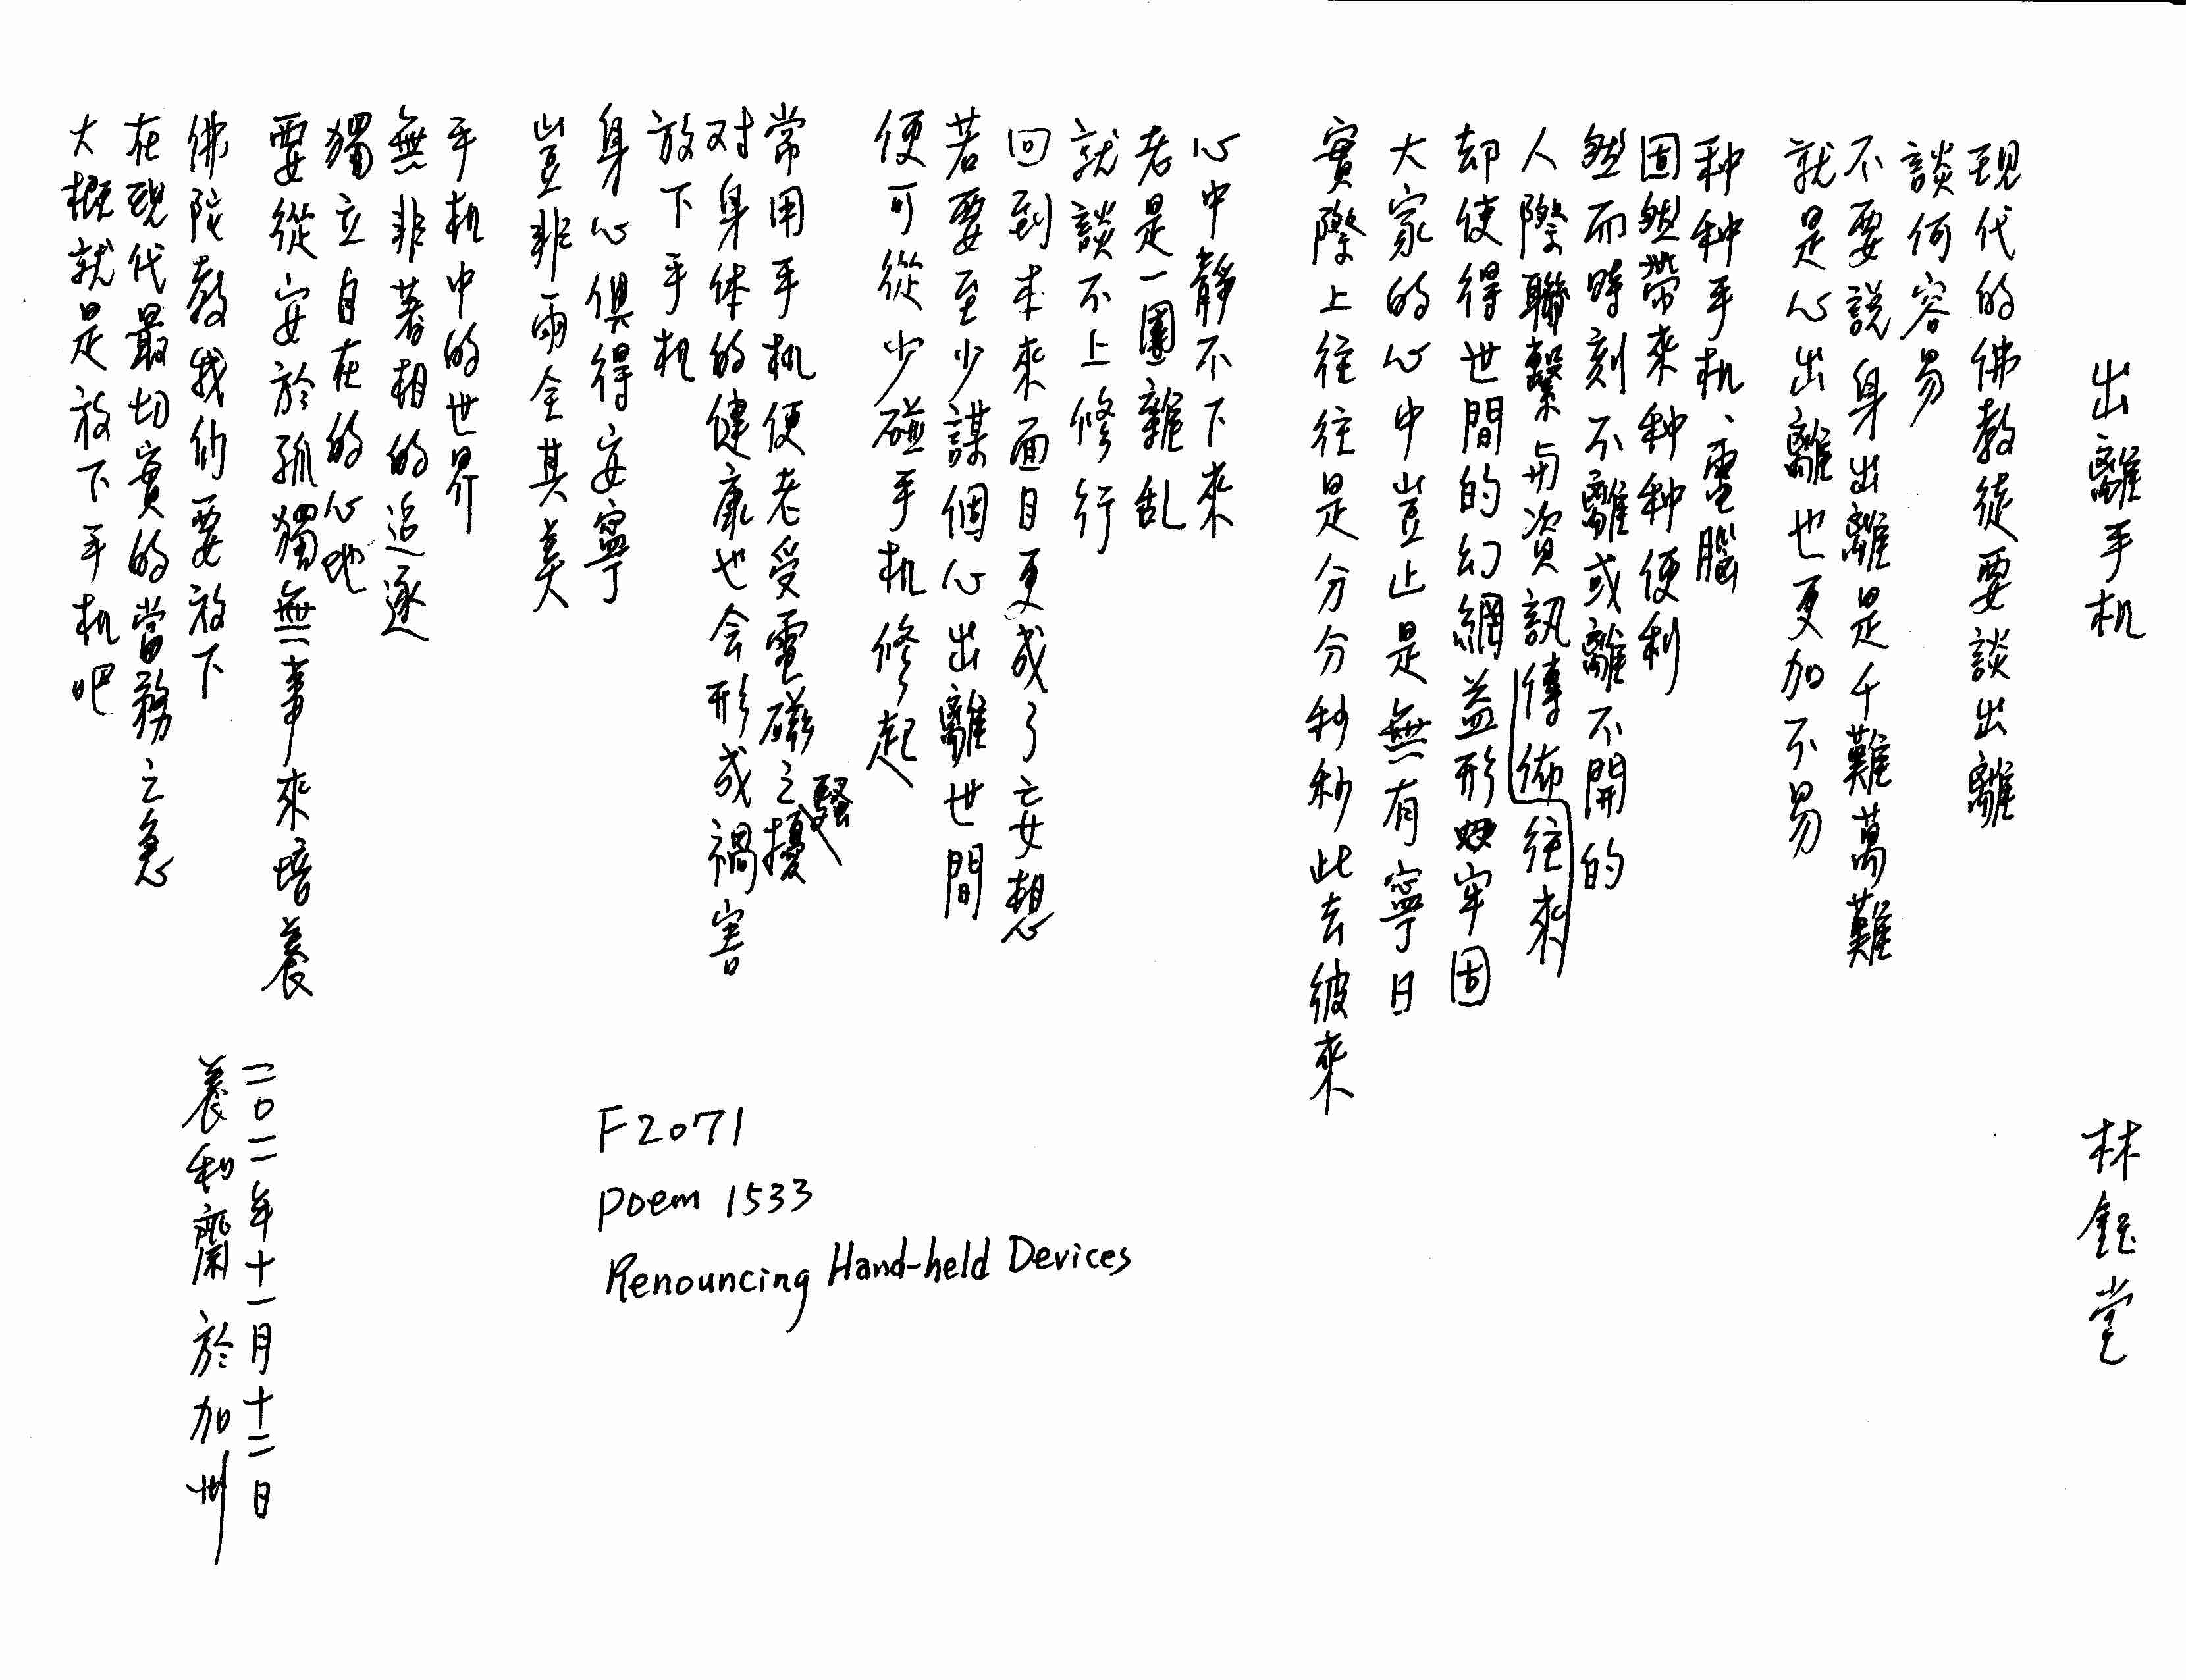 出離手机 林鈺堂
現代的佛教徒要談出離
談何容易
不要說身出離是千難萬難
就是心出離也更加不易
种种手机、電腦
固然帶來种种便利
然而時刻不離或離不開的
人際聯繫与資訊傳佈往來
却使得世間的幻網益形牢固
大家的心中豈止是無有寧日
實際上往往是分分秒秒此去彼來
心中靜不下來
老是一團雜乱
就談不上修行
回到本來面目更成了妄想
若要至少謀個心出離世間
便可從少碰手机修起
常用手机便老受電磁之騷擾
对身体的健康也会形成禍害
放下手机
身心俱得安寧
豈非兩全其美
手机中的世界
無非著相的追逐
獨立自在的心地
要從安於孤獨無事來培養
佛陀教我們要放下
在現代最切實的當務之急
大概就是放下手机吧
二〇一二年十一月十二日
養和齋於加州
F2071
Poem 1533
Renouncing Hand-held Devices